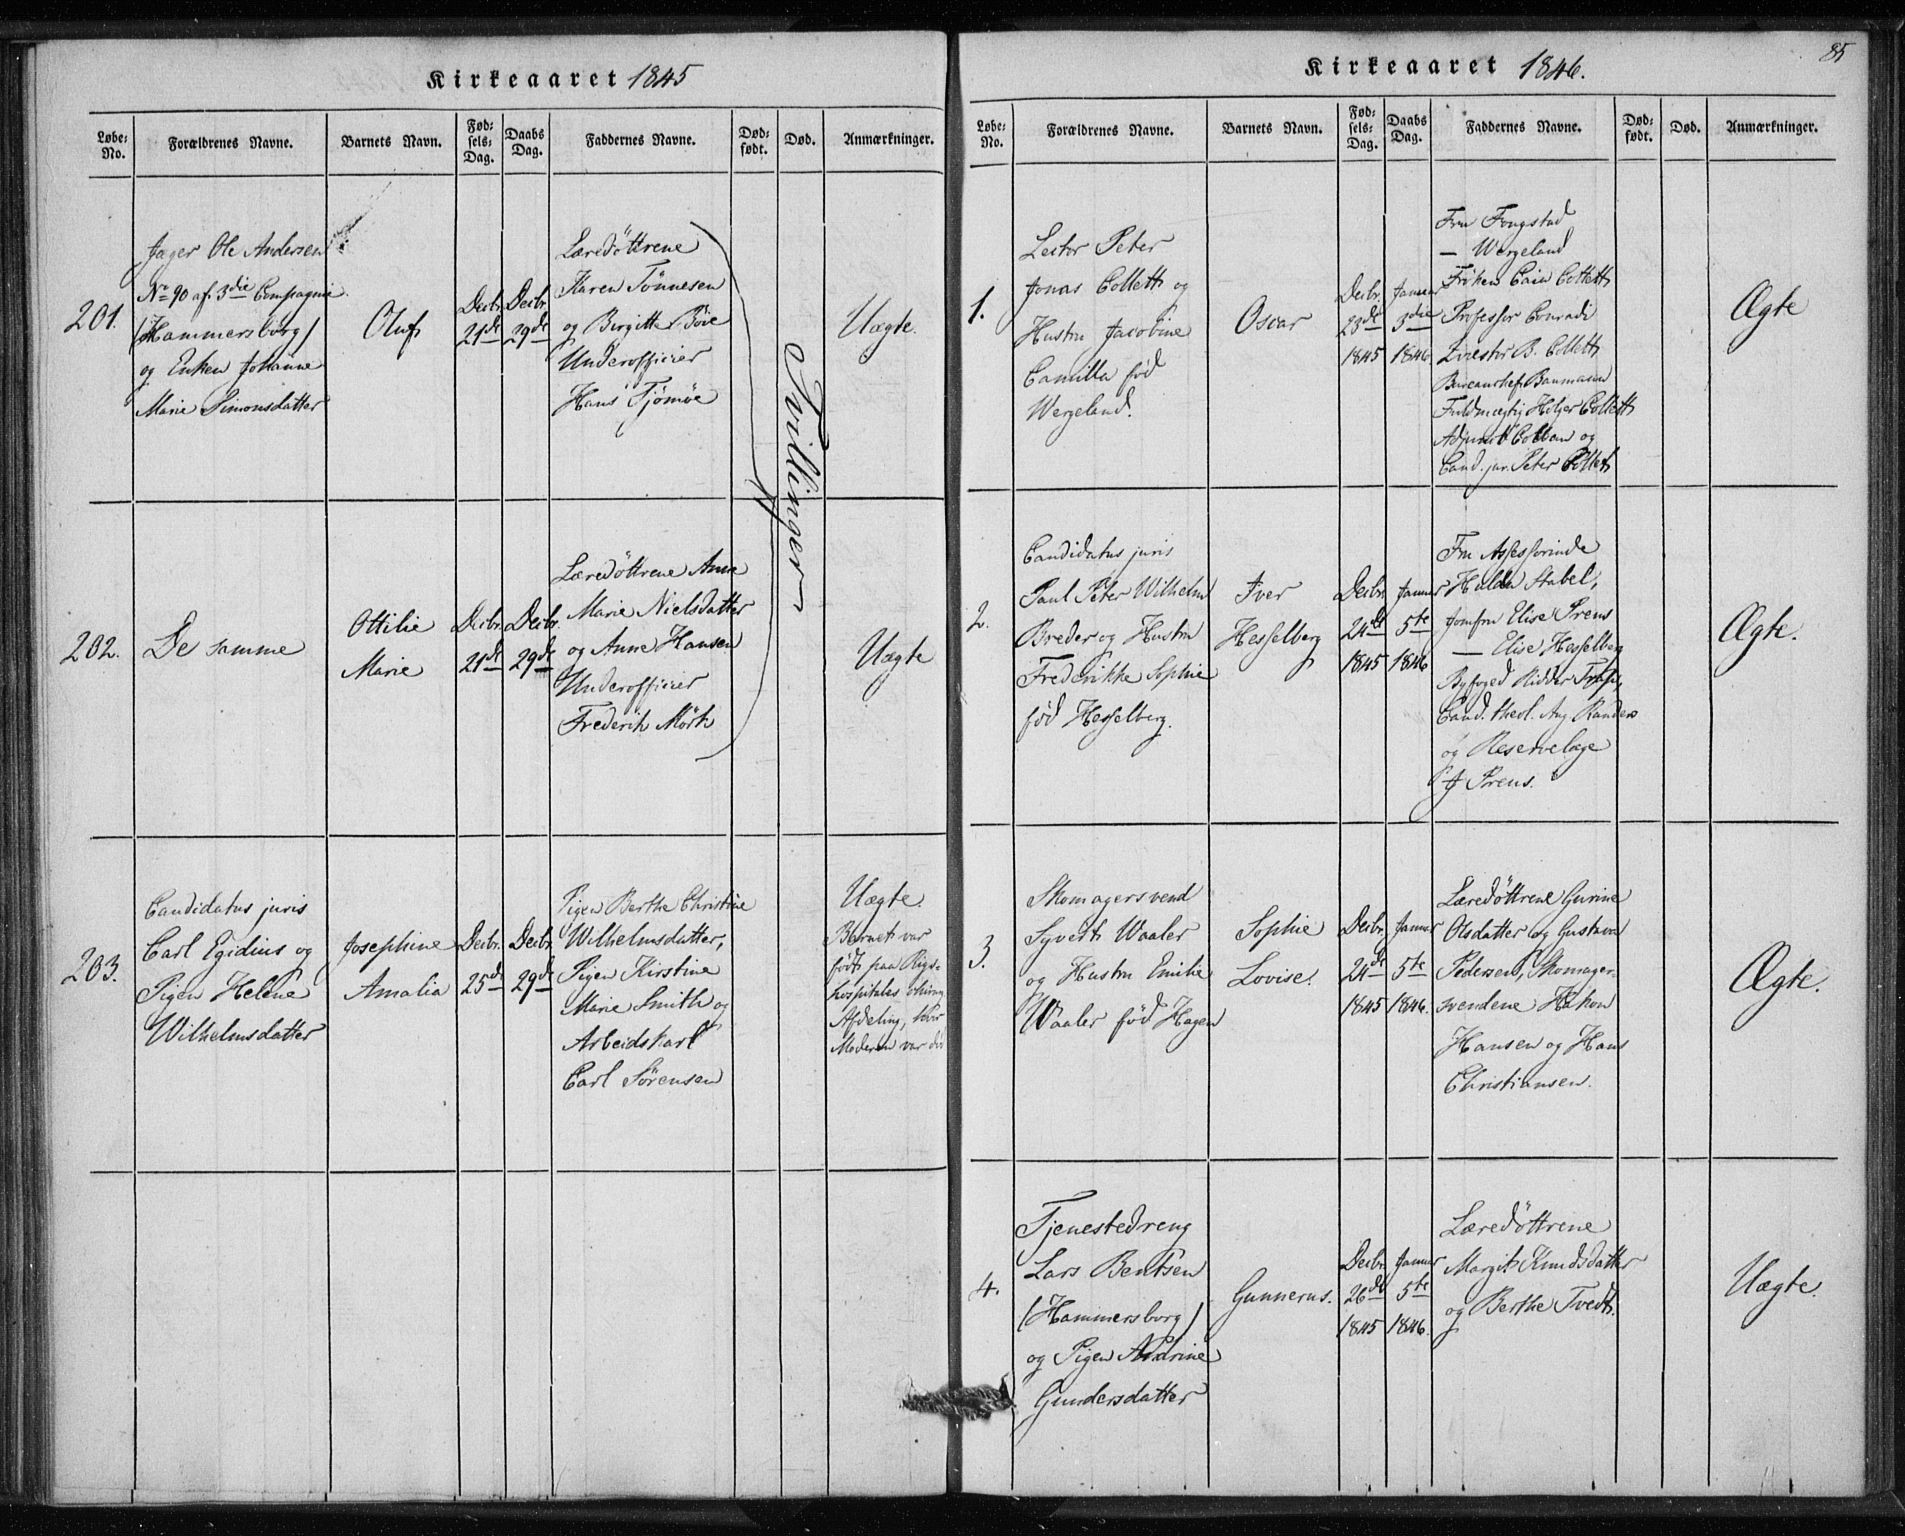 Kirkeaaret 1845
Løbe-No.
Forældrenes Navne.
Barnets Navn.
Fødsels-Dag.
Daabs Dag.
Faddernes Navne.
Dødfødt.
Død.
Anmærkninger.
201.
Jæger Ole Andersen
No 90 af 3die Compagnie
(Hammersborg)
og Enken Johanne
Marie Simonsdatter
Oluf
Decbr.
21de
Decbr.
29de
Læredöttrene
Karen Tönnesen
og Birgitte Böie
Underofficier
Hans Tjömöe
Tvillinger
Uægte.
202.
De samme
Ottilie
Marie
Decbr.
21de
Decbr.
29de
Læredöttrene Anne
Marie Nielsdatter
og Anne Hansen
Underofficier
Frederik Mörk
Uægte
203.
Candidatus juris
Carl Egidius og
Pigen Helene
Wilhelmsdatter
Josephine
Amalia
Decbr.
25de
Decbr.
29de
Pigen Berthe Christine
Wilhelmsdatter,
Pigen Kirstine
Marie Smith og
Arbeidskarl
Carl Sörensen
Uægte
Barnet var
födt paa Rigs-
hospitalets chirurg
Afdeling, hvor
Moderen var
85
Kirkeaaret 1846.
Løbe-No.
Forældrenes Navne.
Barnets Navn.
Fødsels-Dag.
Daabs Dag.
Faddernes Navne.
Dødfødt.
Død.
Anmærkninger.
1.
Lector Peter
Jonas Collett og
Hustru Jacobine
Camilla föd
Wergeland.
Oscar
Decbr.
23de
1845
Januar
3die
1846
Fru Fougstad
— Wergeland
Fröken Caia Collett
Professor Conradi
B. Collett
Bureauchef Baumann
Fuldmægtig Holger Collett
Adjunct Colban og
Cand. jur. Peter Collett
Ægte
2.
Candidatus juris
Paul Peter Wilhelm
Breder og Hustru
Frederikke Sophie
föd Hesselberg.
Iver
Hesselberg
Decbr.
24de
1845
Januar
5te
1846
Fru Assessorinde
Hulda Stabel,
Jomfru Elise Prens
— Elise Hesselberg
Byfoged Ridder
Cand. theol. Aug Randers
og Reservelæge
J Prens.
Ægte.
3.
Skomagersvend
Syvert Waaler
og Hustru Emilie
Waaler föd Hagen
Sophie
Lovise.
Decbr.
24de
1845
Januar
5te
1846.
Læredöttrene Gurine
Olsdatter og Gustava
Pedersen, Skomager-
svendene Hakon
Hansen og Hans
Christiansen.
Ægte.
4.
Tjenestedreng
Lars Bentsen
(Hammersborg)
og Pigen
Gundersdatter
Gunnerus.
Decbr.
26de
1845
Januar
5te
1846.
Læredöttrene
Margit Knudsdatter
og Berthe Tvedt.
Uægte.